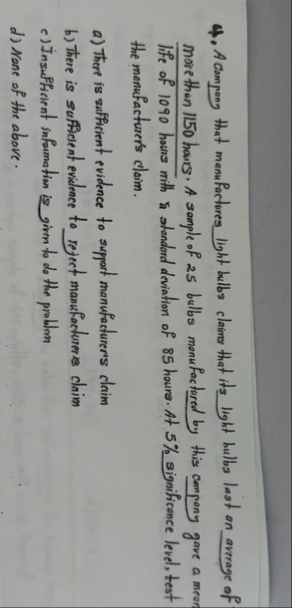 4. A Company that manufactures light bulbs claims that its light bulbs last an average of
more than 1150 hours. A sample of 25 bulbs manufactured by this company gave a mean
life of 1090 hours with a standard deviation of 85 hours. At 5% significance level, test
the manufacturer's claim.
a) There is sufficient evidence to support manufacturer's claim
b) There is sufficient evidence to reject manufacturer's claim
c) Insufficient information is given to do the problem
d) None of the above.